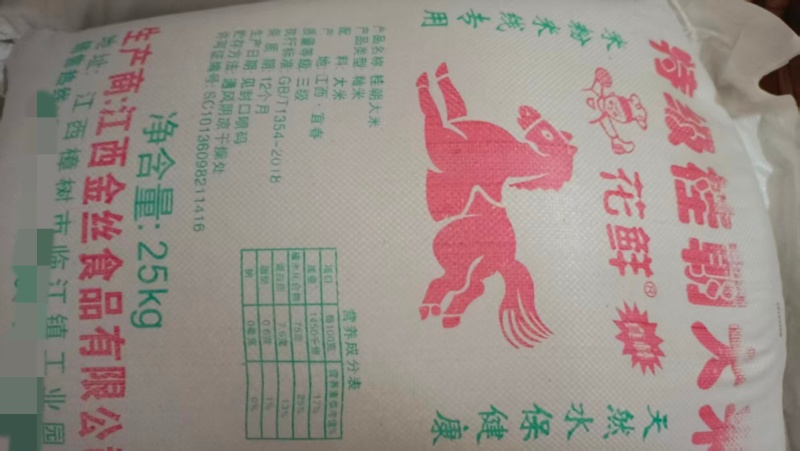 特级桂朝大米
花鲜®
米粉米线专用
天然水保健康
产品名称:桂朝大米
产品类型:籼米
配 料:大米
产 地:江西·宜春
质量等级:三级
执行标准:GB/T1354-2018
保质期:12个月
生产日期:见封口喷码
贮存方法:通风阴凉干燥处
许可证编号:SC10136098211416
营养成分表
项目 每100克 营养素参考值%
能量 1450千焦 17%
蛋白质 13%
脂肪 1%
碳水化合物 25%
钠 0毫克 0%
净含量:25kg
生产商:江西金丝食品有限公
地址:江西樟树市临江镇工业园
销售热线